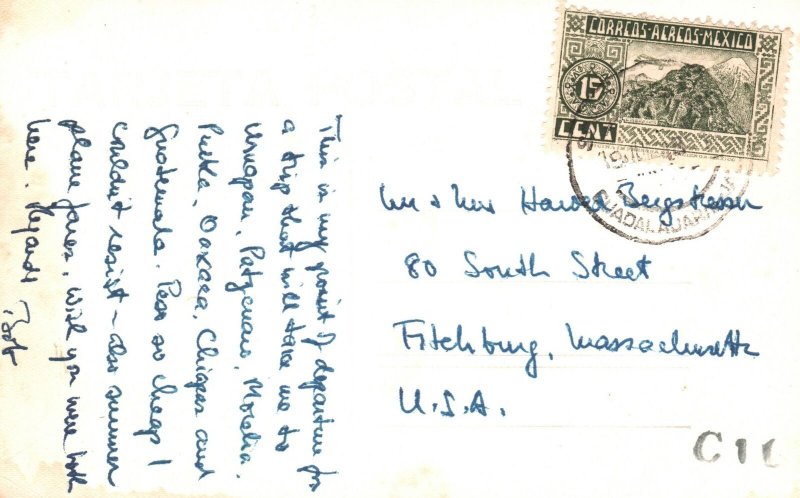 CORREOS-AEREOS-MEXICO
15
CENT
GUADALAJARA, JAL
Mr & Mrs Harold Bergstrom
80 South Street
Fitchburg, Massachusetts
U.S.A.
This is my point of departure for
a trip that will take me to
Uruapan, Patzcuaro, Morelia,
Puebla, Oaxaca, Chiapas and
Guatemala. Peso so cheap I
couldn't resist - also summer
plane fares. Wish you were both
here. Regards Bob
C11